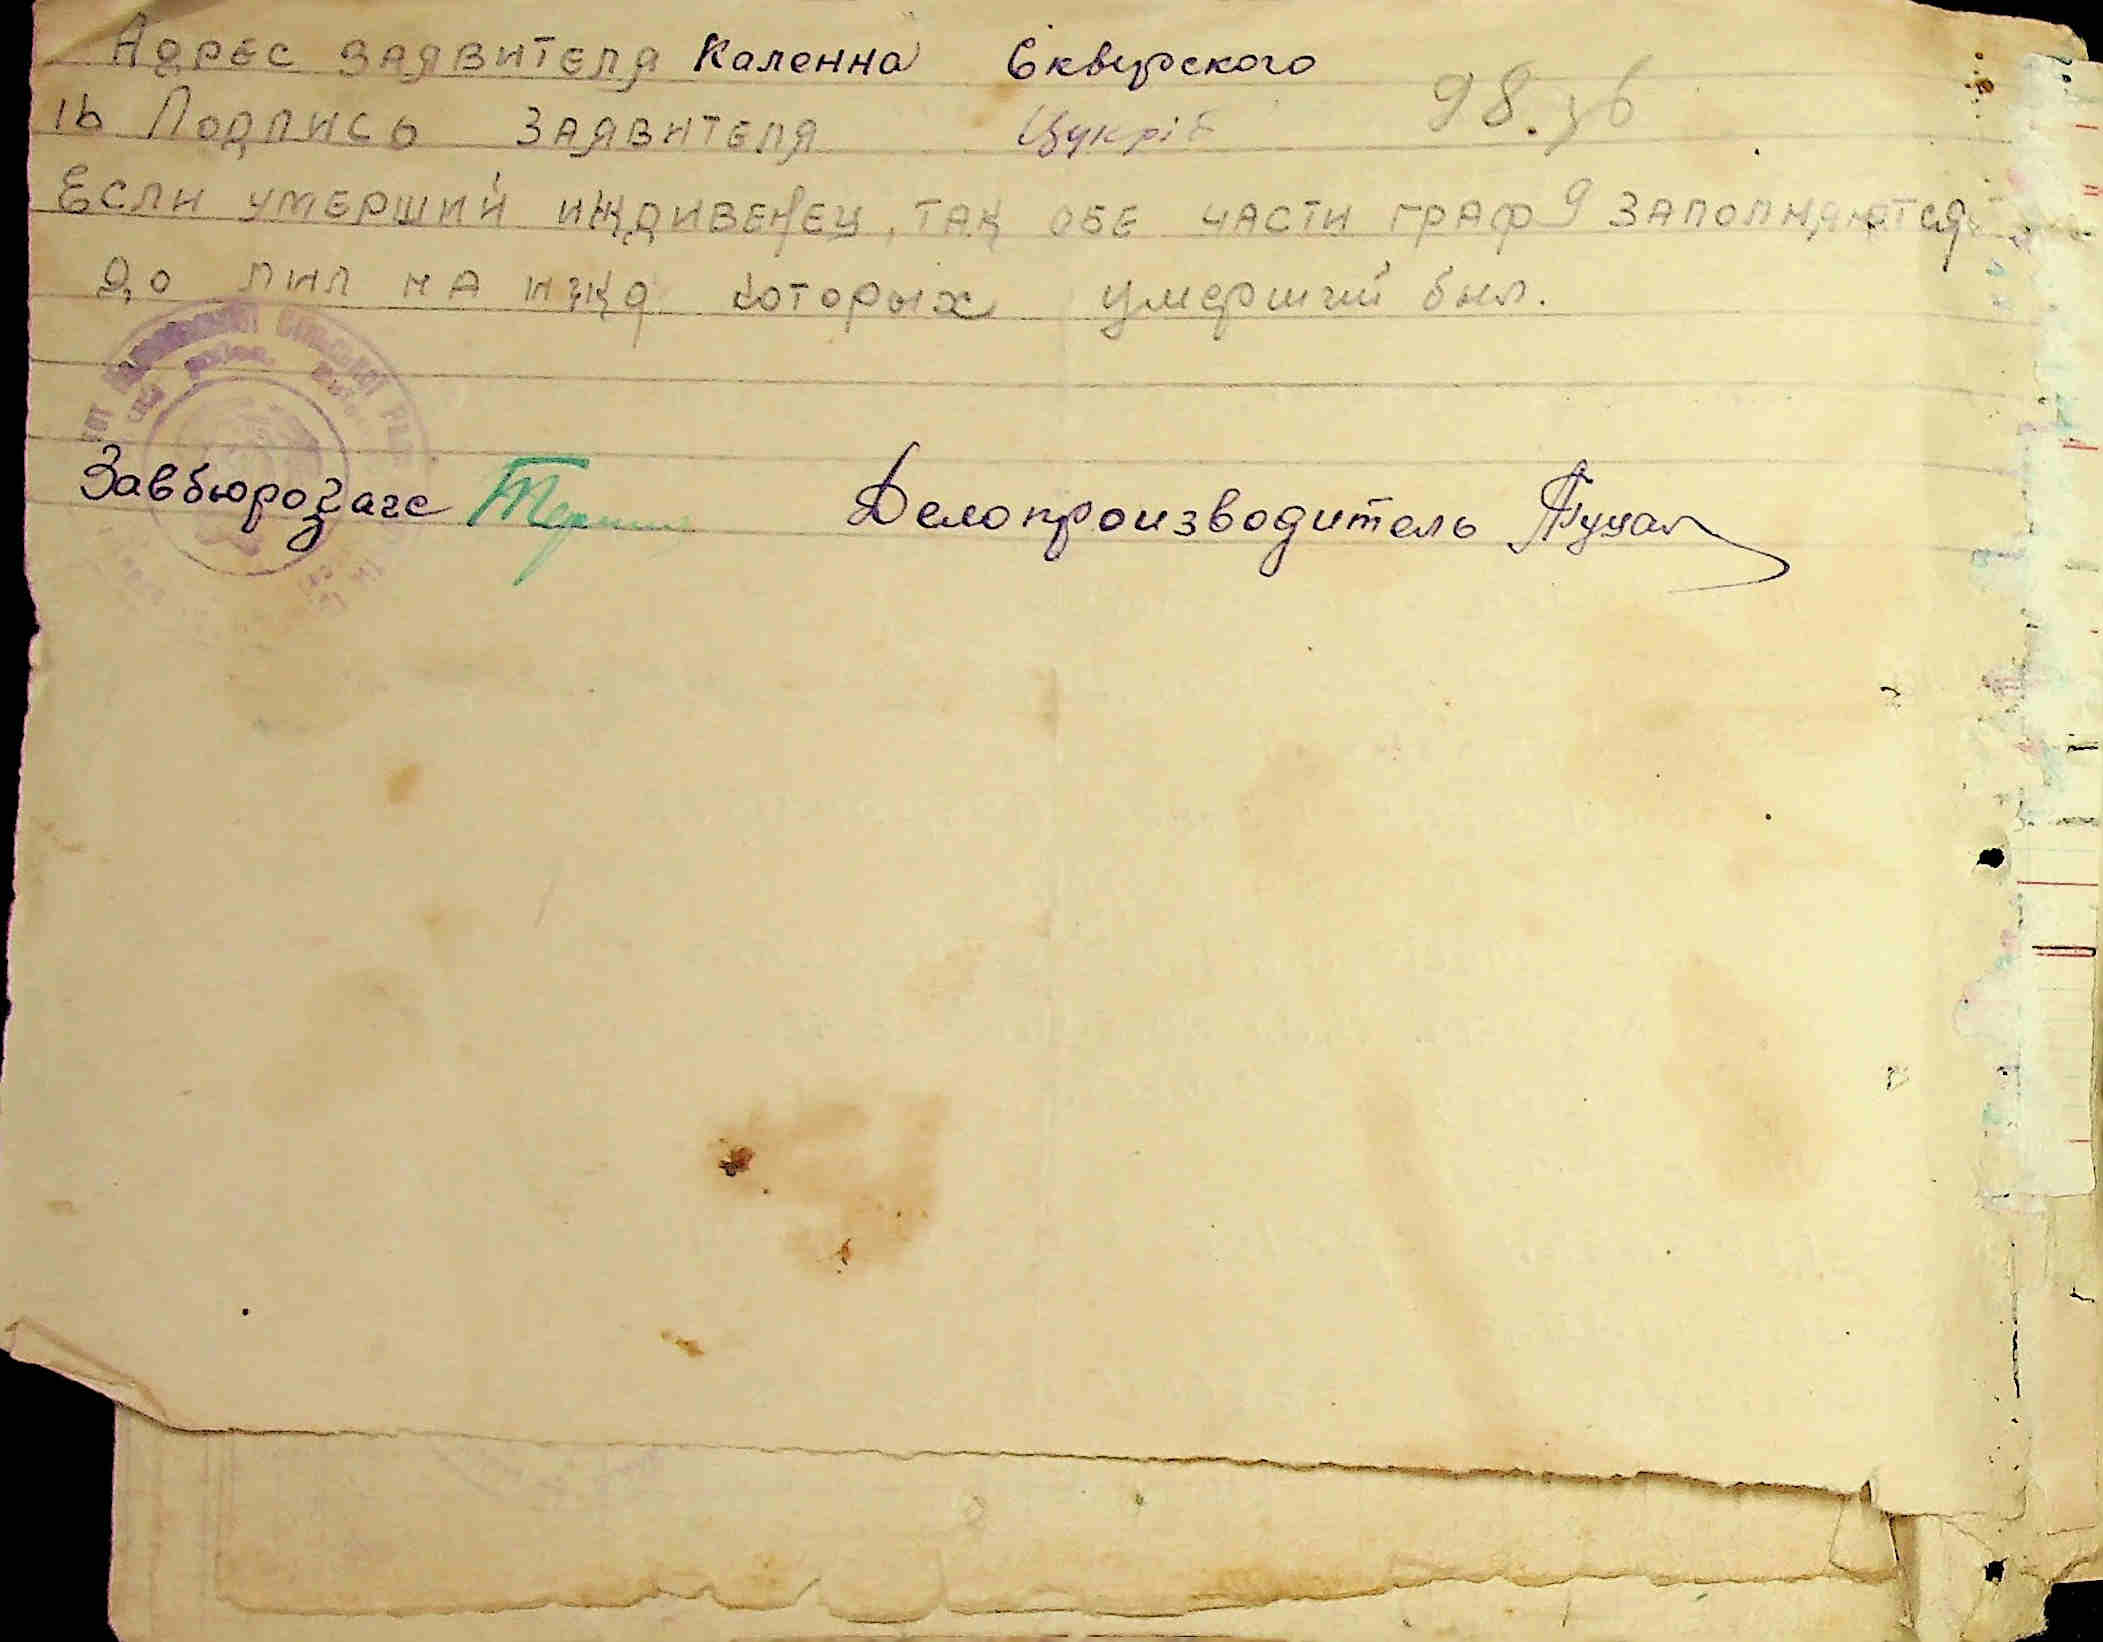 Адрес заявителя Каленна Сквирского
16 Подпись заявителя Цукрів 98.
Если умерший иждивенец, так обе части граф 9 заполняются
до лиц на ижд которых умерший был.
Завбюрозагс Делопроизводитель